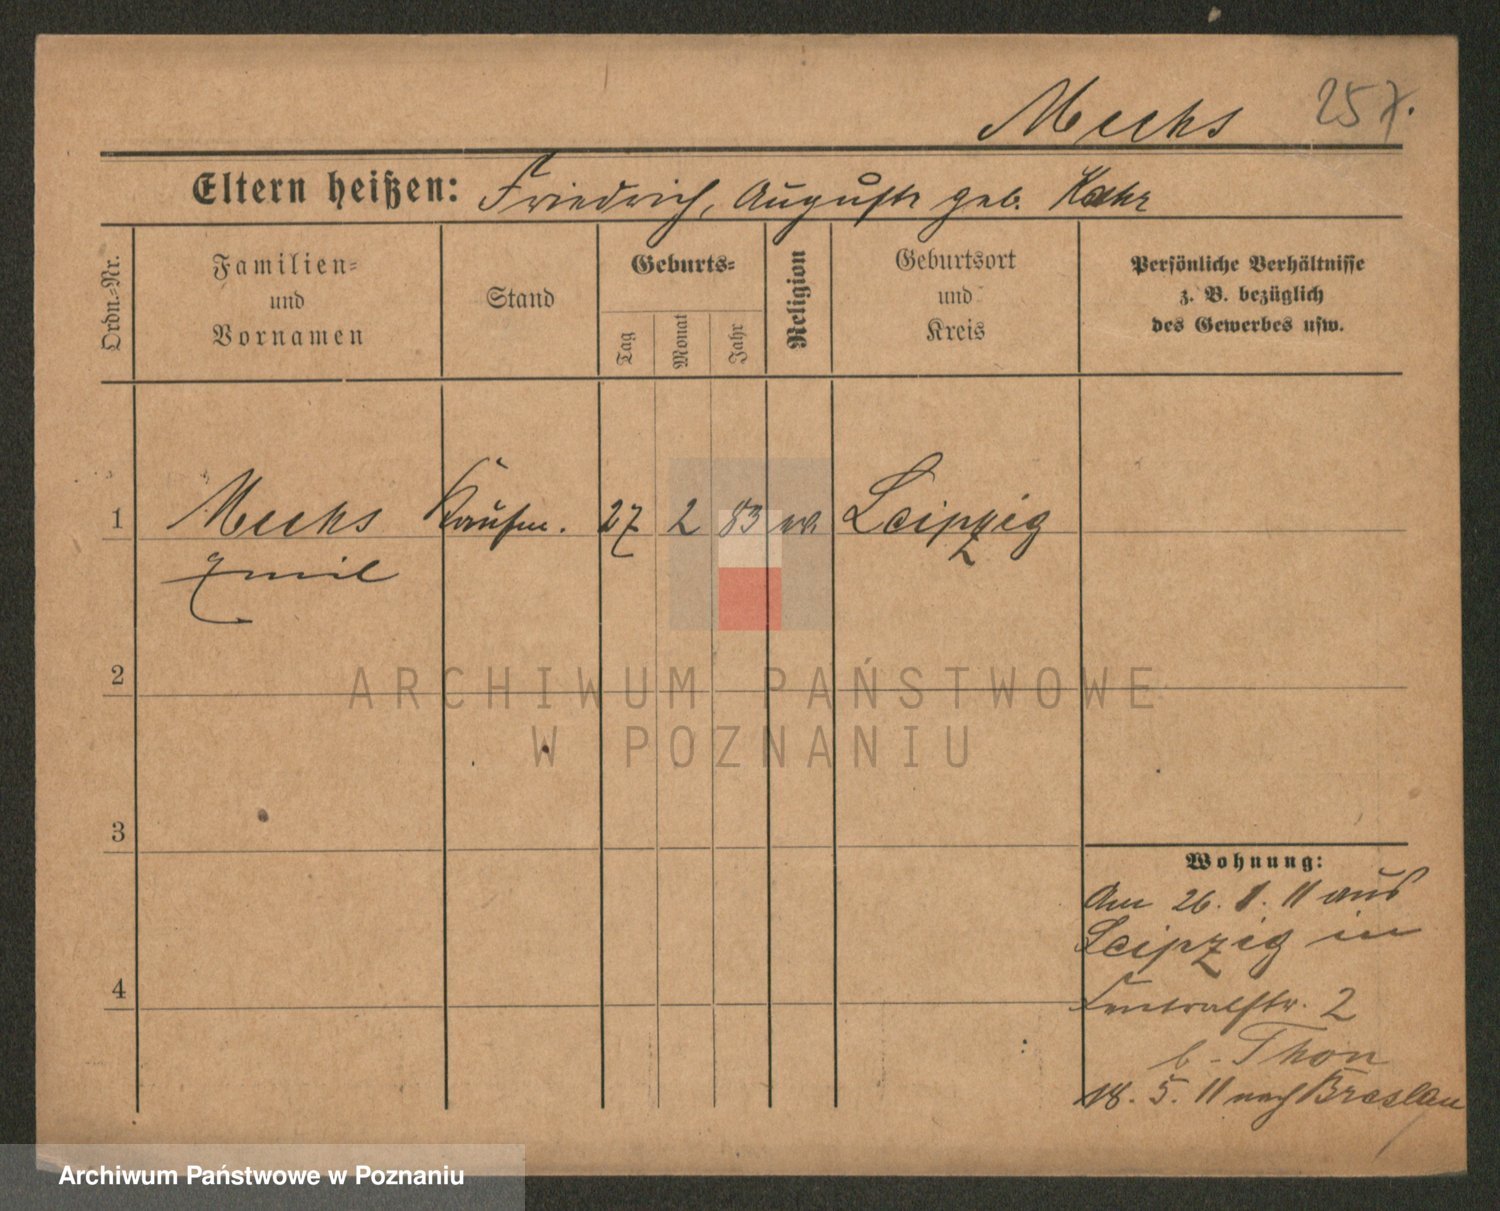 Meeks 257.
Eltern heißen: Friedrich, Auguste geb.
Ordn.-Nr.
Familien-
und
Vornamen
Stand
Geburts-
Tag
Monat
Jahr
Religion
Geburtsort
und
Kreis
Persönliche Verhältnisse
z. B. bezüglich
des Gewerbes usw.
1 Meeks Kaufm. 27 2 83 ev Leipzig
Emil
2
3
4
Wohnung:
Am 26. 1. 11 aus
Leipzig in
Centralstr. 2
b. Thon
18. 5. 11 nach Breslau
ARCHIWUM PAŃSTWOWE
W POZNANIU
Archiwum Państwowe w Poznaniu